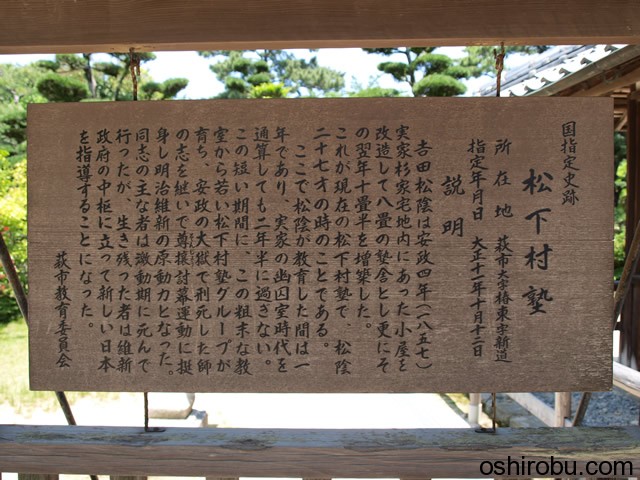 国指定史跡
松下村塾
所在地 萩市大字椿東字新道
指定年月日 大正十一年十月十二日
説明
吉田松陰は安政四年(一八五七)
実家杉家宅地内にあった小屋を
改造して八畳の塾舎とし更にそ
の翌年十畳半を増築した。
これが現在の松下村塾で、松陰
二十七才の時のことである。
ここで松陰が教育した間は一
年であり、実家の幽囚室時代を
通算しても二年半に過ぎない。
この短い期間に、この粗末な教
室から若い松下村塾グループが
育ち、安政の大獄で刑死した師
の志を継いで尊攘討幕運動に挺
身し明治維新の原動力となった。
同志の主な者は激動期に死んで
行ったが、生き残った者は維新
政府の中枢に立って新しい日本
を指導することになった。
萩市教育委員会
oshirobu.com